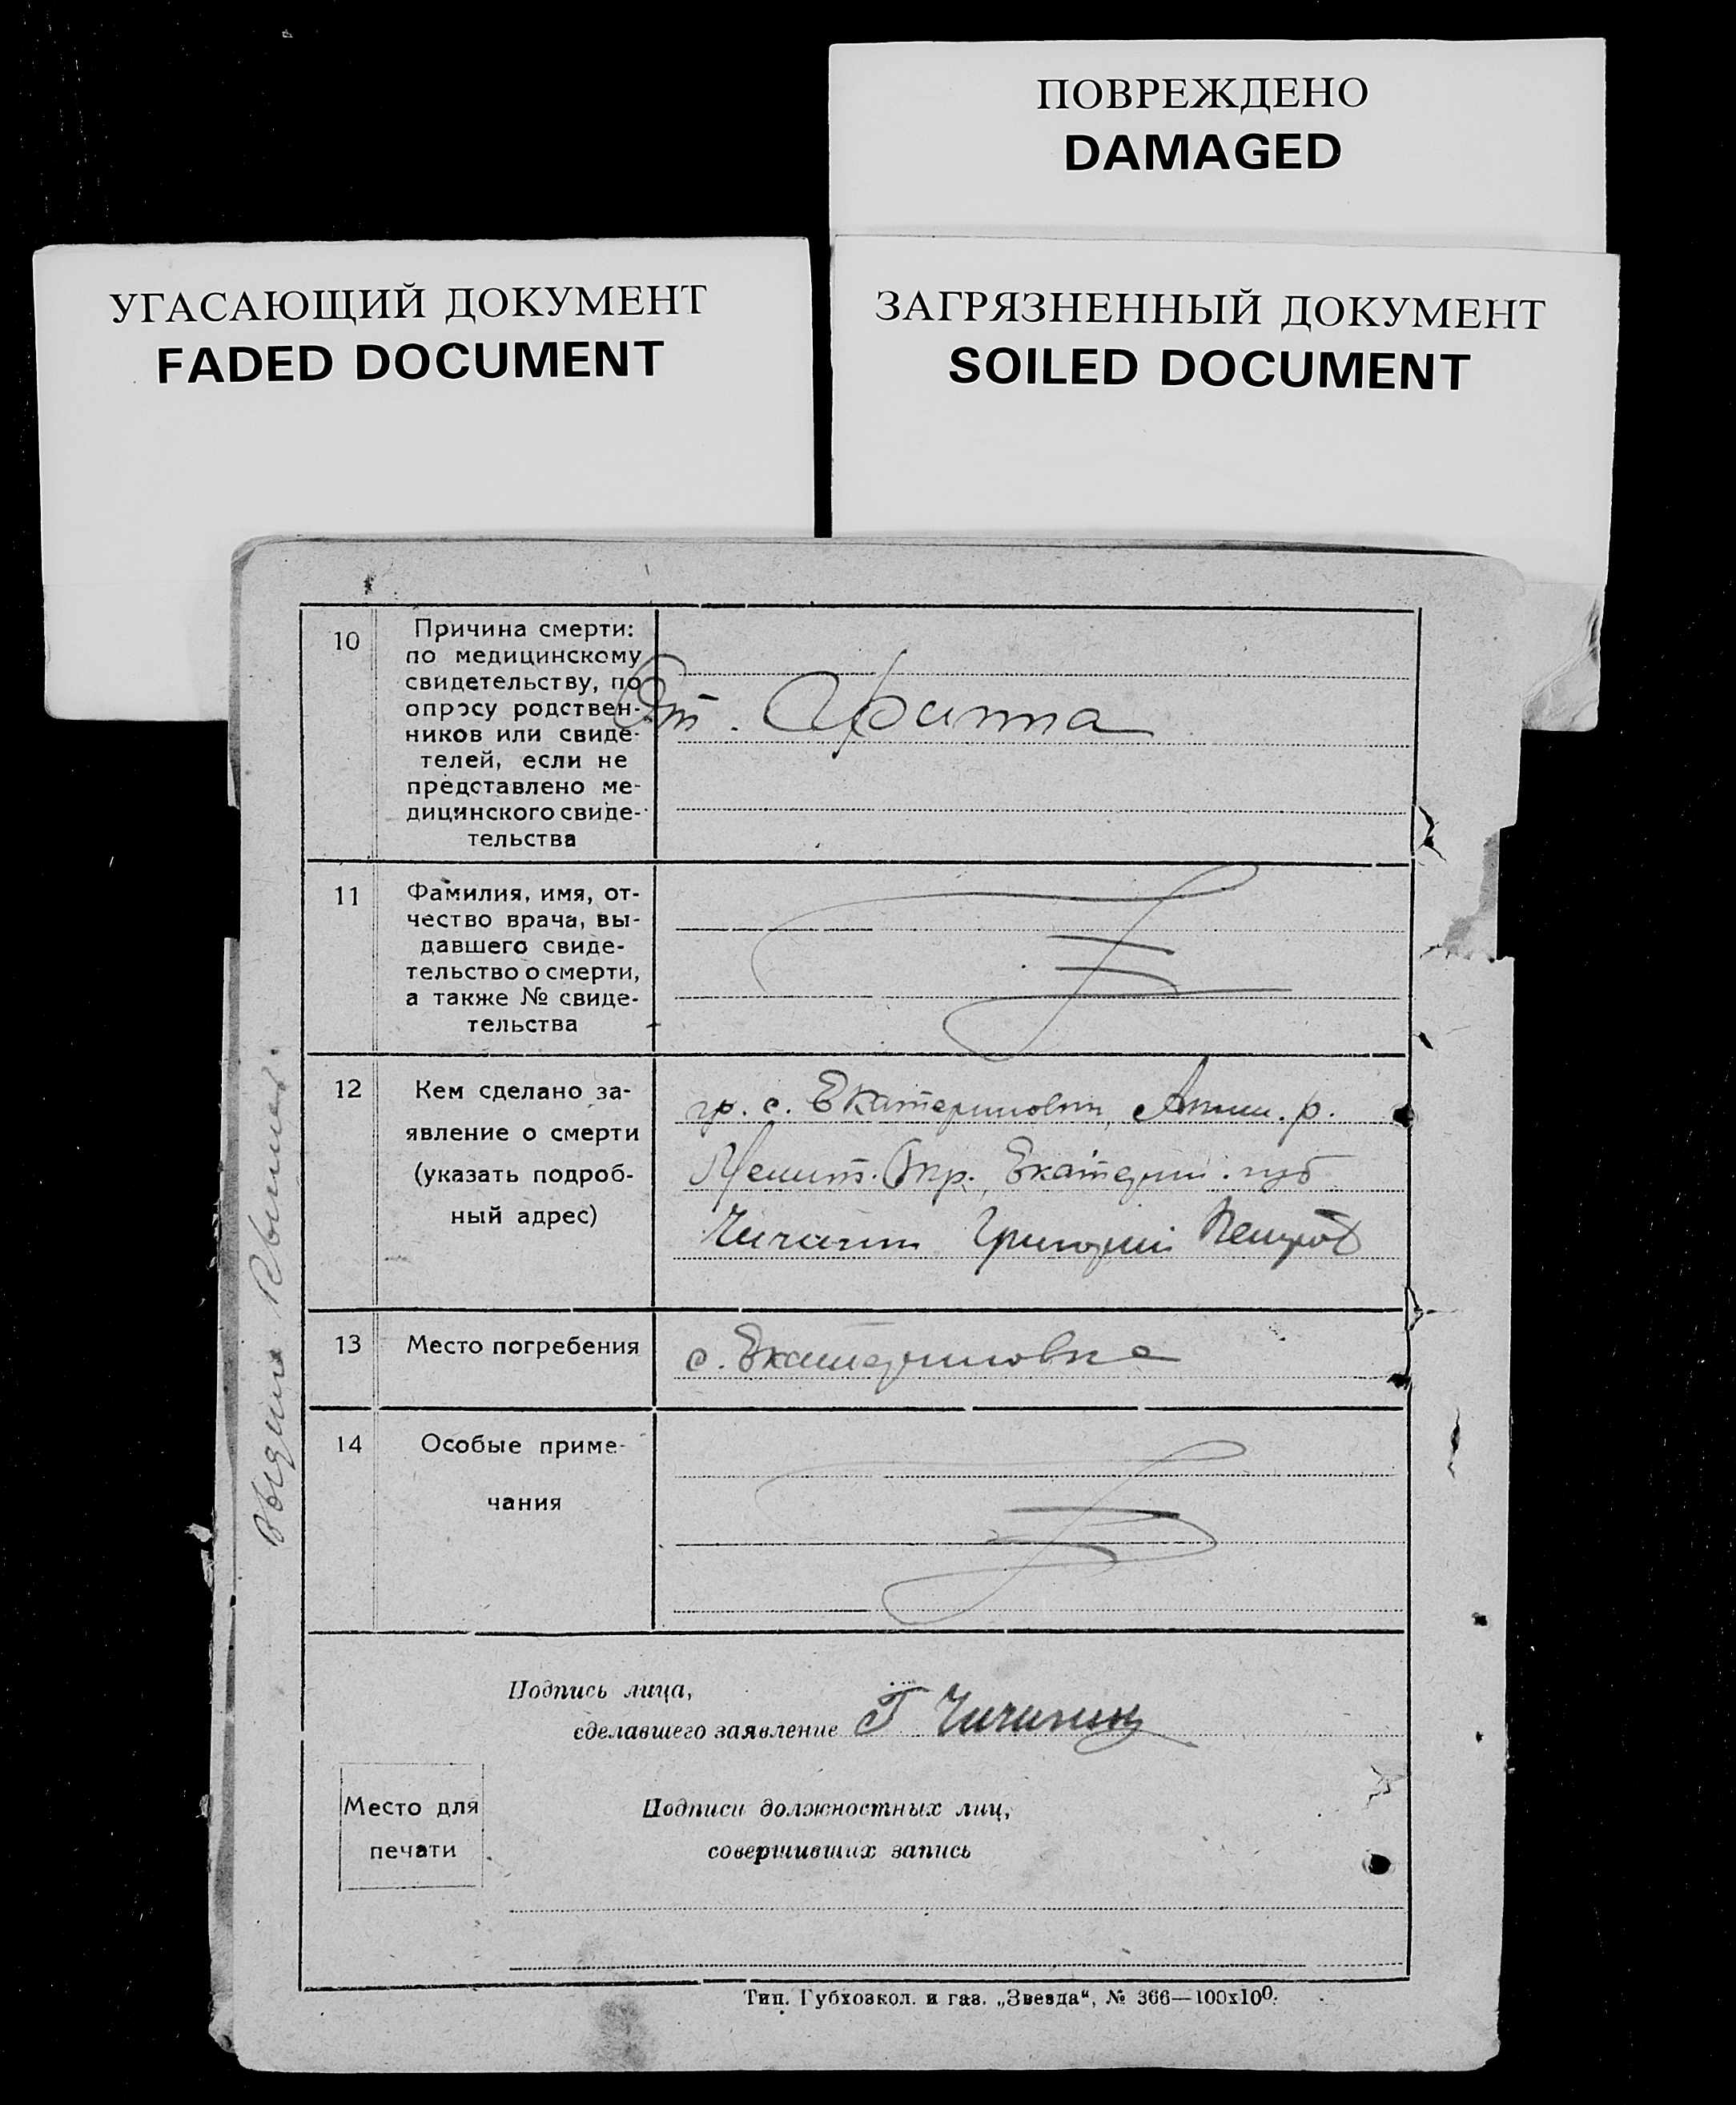 ПОВРЕЖДЕНО
DAMAGED
УГАСАЮЩИЙ ДОКУМЕНТ
FADED DOCUMENT
ЗАГРЯЗНЕННЫЙ ДОКУМЕНТ
SOILED DOCUMENT
10
Причина смерти:
по медицинскому
свидетельству, по
опросу родствен-
ников или свиде-
телей, если не
представлено ме-
дицинского свиде-
тельства
От.
11
Фамилия, имя, от-
чество врача, вы-
давшего свиде-
тельство о смерти,
а также № свиде-
тельства
12
Кем сделано за-
явление о смерти
(указать подроб-
ный адрес)
гр. с. Екатериновки, р.
Мелит. Окр., Екатерин. губ
Григорий Петров
13
Место погребения
с. Екатериновка
14
Особые приме-
чания
Подпись лица,
сделавшего заявление Г Чичинин
Место для
печати
Подписи должностных лиц,
совершивших запись
Тип. Губхозкол. и газ. „Звезда“, № 366—100х100.